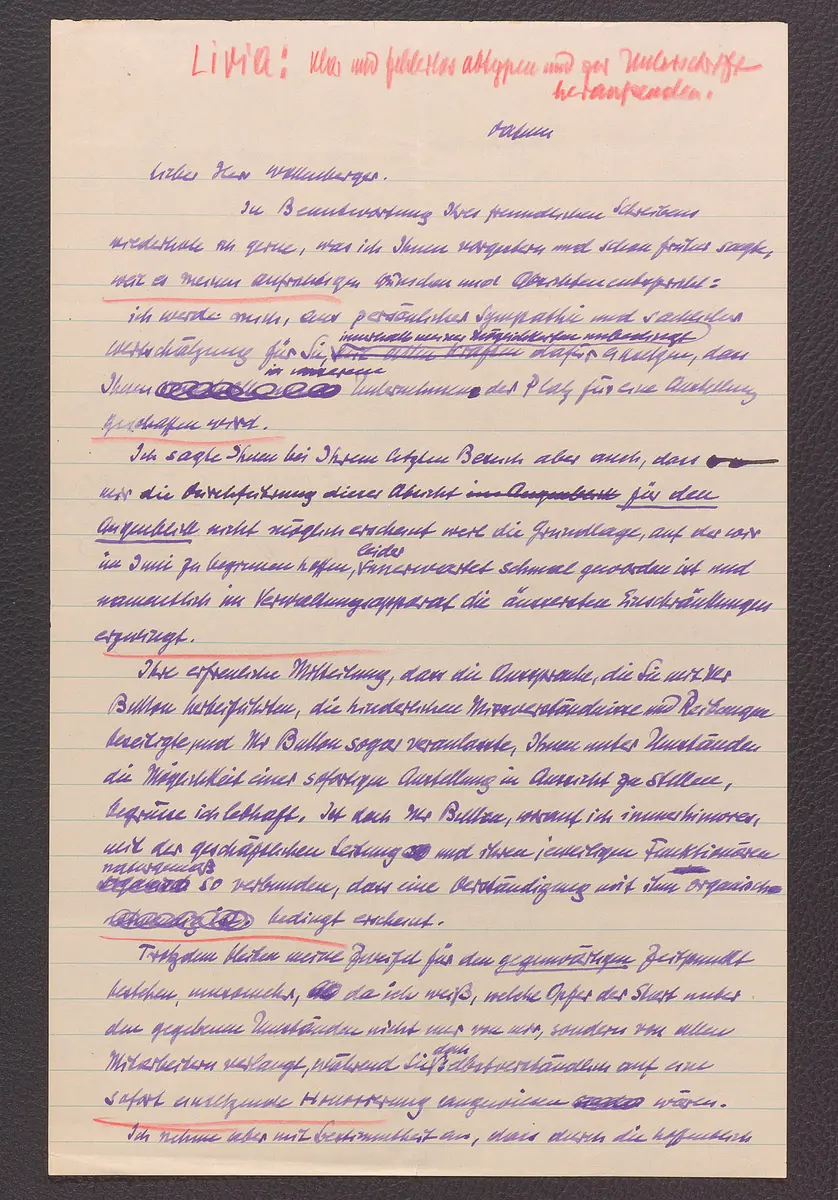 Livia: klar und fehlerlos abtypen und zur Unterschrift
heraufsenden.
Datum
Lieber Herr Wollenberger.
In Beantwortung Ihres freundlichen Schreibens
wiederhole ich gerne, was ich Ihnen vorgestern und schon früher sagte,
weil es meinen aufrichtigen Wünschen und Absichten entspricht:
ich werde mich, aus persönlicher Sympathie und sachlicher
innerhalb meiner Möglichkeiten unbedingt
Wertschätzung für Sie, mit allen Kräften dafür einsetzen, dass
in unserem
Ihnen Unternehmen der Platz für eine Anstellung
geschaffen wird.
Ich sagte Ihnen bei Ihrem letzten Besuch aber auch, dass
mir die Durchführung dieser Absicht im Augenblick für den
Augenblick nicht möglich erscheint weil die Grundlage, auf der wir
leider
im Juni zu beginnen hoffen, unerwartet schmal geworden ist und
namentlich im Verwaltungsapparat die äussersten Einschränkungen
erzwingt.
Ihre erfreuliche Mitteilung, dass die Aussprache, die Sie mit Mr
Button herbeiführten, die hinderlichen Missverständnisse und Reibungen
beseitigte, und Mr Button sogar veranlasste, Ihnen unter Umständen
die Möglichkeit einer sofortigen Anstellung in Aussicht zu stellen,
begrüsse ich lebhaft. Ist doch Mr Button, worauf ich immer hinwies,
mit der geschäftlichen Leitung und ihren jeweiligen Funktionären
naturgemäß
so verbunden, dass eine Verständigung mit ihm organisch
bedingt erscheint.
Trotzdem bleiben meine Zweifel für den gegenwärtigen Zeitpunkt
bestehen, umsomehr, da ich weiß, welche Opfer der Start unter
den gegebenen Umständen nicht nur von mir, sondern von allen
doch
Mitarbeitern verlangt, während Sie selbstverständlich auf eine
sofort einsetzende Honorierung angewiesen wären.
Ich nehme aber mit Bestimmtheit an, dass durch die hoffentlich